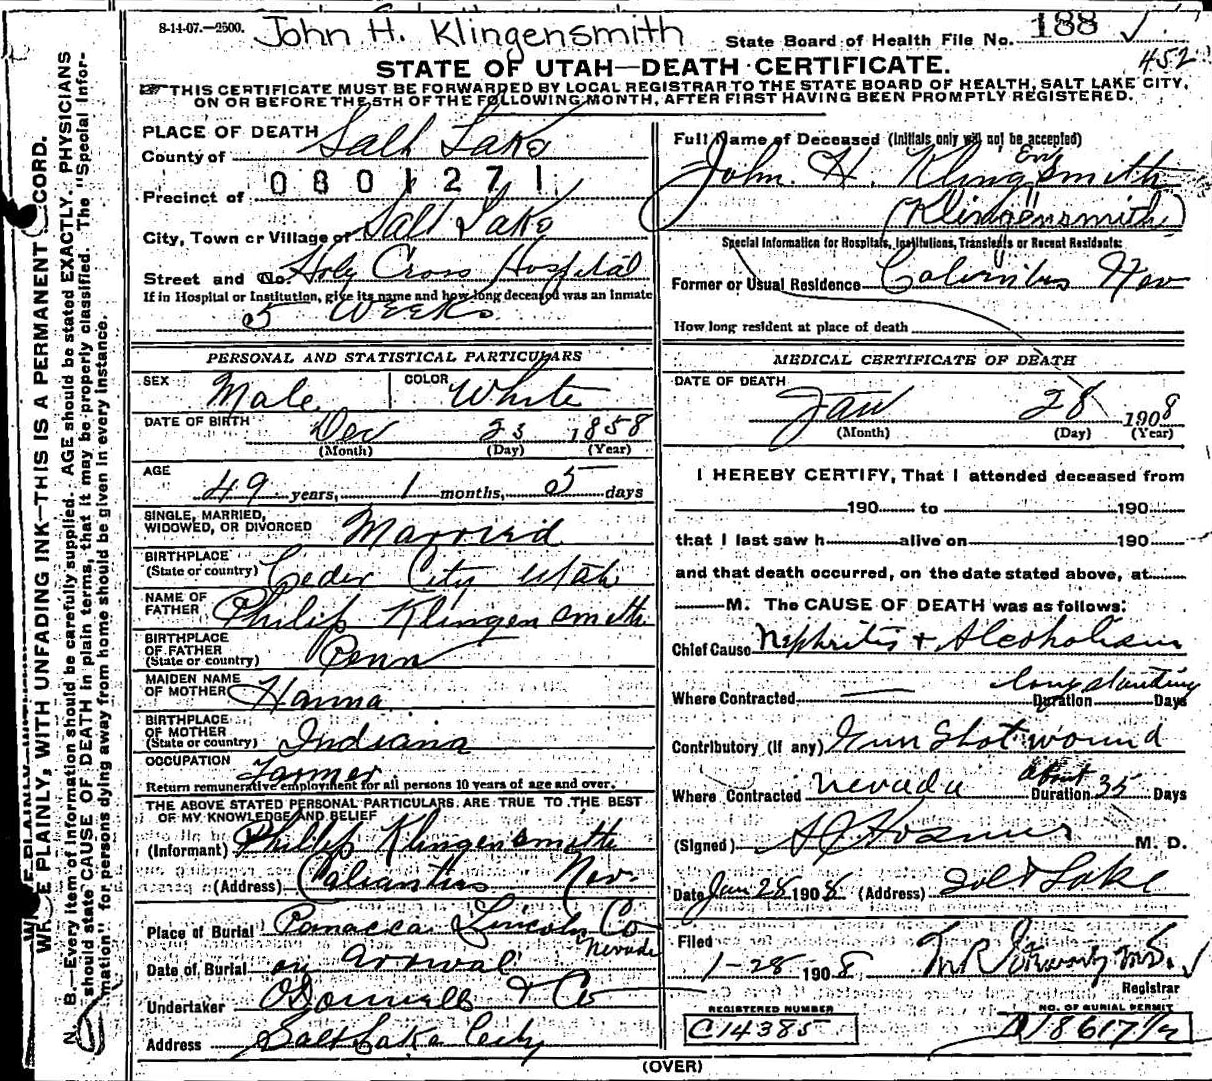 8-14-07.—2500. John H. Klingensmith State Board of Health File No. 188
452
STATE OF UTAH—DEATH CERTIFICATE.
THIS CERTIFICATE MUST BE FORWARDED BY LOCAL REGISTRAR TO THE STATE BOARD OF HEALTH, SALT LAKE CITY,
ON OR BEFORE THE 5TH OF THE FOLLOWING MONTH, AFTER FIRST HAVING BEEN PROMPTLY REGISTERED.
PLACE OF DEATH
County of Salt Lake
Precinct of 0801271
City, Town or Village of Salt Lake
Street and No. Holy Cross Hospital
If in Hospital or Institution, give its name and how long deceased was an inmate
5 Weeks
PERSONAL AND STATISTICAL PARTICULARS
SEX Male COLOR White
DATE OF BIRTH Dec 23 1858
(Month) (Day) (Year)
AGE
49 years, 1 months, 5 days
SINGLE, MARRIED,
WIDOWED, OR DIVORCED Married
BIRTHPLACE
(State or country) Ceder City Utah
NAME OF
FATHER Philip Klingensmith
BIRTHPLACE
OF FATHER
(State or country) Penn
MAIDEN NAME
OF MOTHER Hanna
BIRTHPLACE
OF MOTHER
(State or country) Indiana
OCCUPATION
Farmer
Return remunerative employment for all persons 10 years of age and over.
THE ABOVE STATED PERSONAL PARTICULARS ARE TRUE TO THE BEST
OF MY KNOWLEDGE AND BELIEF
(Informant) Phillip Klingensmith
(Address) Nev.
Place of Burial Panacca Lincoln Co
Nevada
Date of Burial on Arrival
Undertaker O'Donnell & Co
Address Salt Lake City
Full Name of Deceased (Initials only will not be accepted)
John. H. Klingensmith
(Klingensmith)
Special Information for Hospitals, Institutions, Transients or Recent Residents:
Former or Usual Residence Columbus Nev
How long resident at place of death
MEDICAL CERTIFICATE OF DEATH
DATE OF DEATH
Jan 28 1908
(Month) (Day) (Year)
I HEREBY CERTIFY, That I attended deceased from
190 to 190
that I last saw h alive on 190
and that death occurred, on the date stated above, at
M. The CAUSE OF DEATH was as follows:
Chief Cause Nephritis + Alcoholism
long standing
Where Contracted — Duration Days
Contributory (If any) Gun Shot wound
Where Contracted nevada about Duration 35 Days
(Signed) M. D.
Date Jan 28 1908 (Address) Salt Lake
Filed
1-28 1908
Registrar
REGISTERED NUMBER
C14385
NO. OF BURIAL PERMIT
18617 1/2
(OVER)
WRITE PLAINLY, WITH UNFADING INK—THIS IS A PERMANENT RECORD.
N. B.—Every item of information should be carefully supplied. AGE should be stated EXACTLY. PHYSICIANS
should state CAUSE OF DEATH in plain terms, that it may be properly classified. The "Special Infor-
mation" for persons dying away from home should be given in every instance.